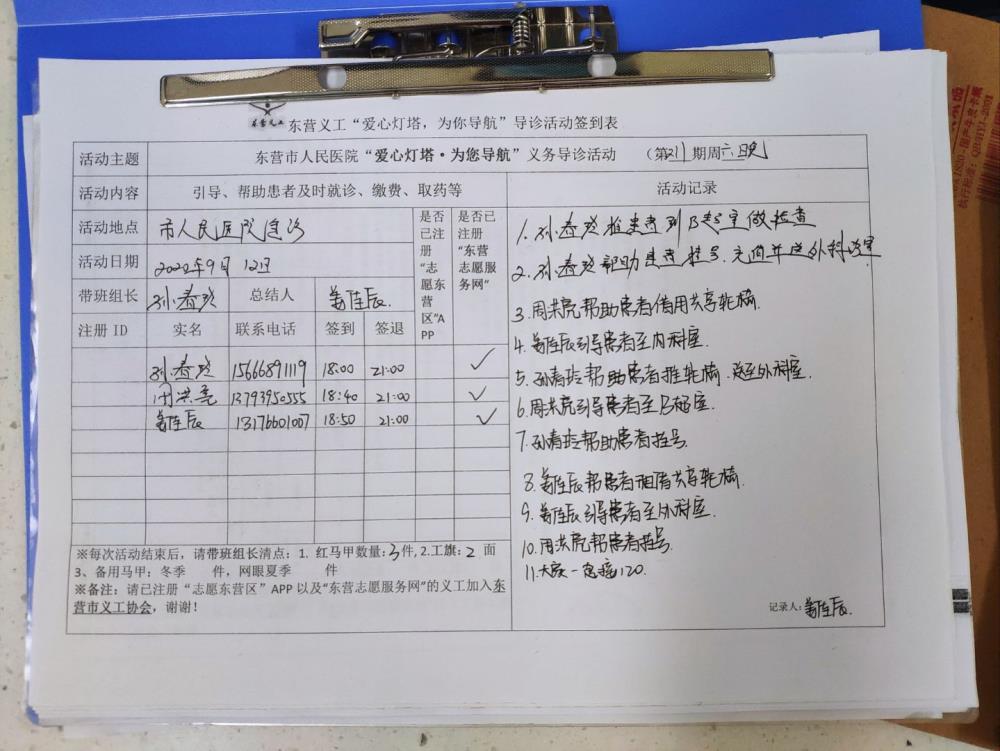 东营义工
东营义工“爱心灯塔，为你导航”导诊活动签到表
活动主题 东营市人民医院“爱心灯塔·为您导航”义务导诊活动 （第 期周六晚
活动内容 引导、帮助患者及时就诊、缴费、取药等
活动地点 市人民医院急诊
活动日期 2022年9月 12日
带班组长 孙春玲 总结人 姜佳辰
是否已注册“志愿东营区”APP
是否已注册“东营志愿服务网”
注册 ID 实名 联系电话 签到 签退
孙春玲 15666891119 18:00 21:00 ✓
周洪亮 13793950555 18:40 21:00 ✓
姜佳辰 13176601007 18:50 21:00 ✓
※每次活动结束后，请带班组长清点：1. 红马甲数量:3件,2.工旗:2 面
3、备用马甲：冬季 件，网眼夏季 件
※备注：请已注册“志愿东营区”APP 以及“东营志愿服务网”的义工加入东
营市义工协会，谢谢！
活动记录
1. 孙春玲推患者到B超室做检查
2. 孙春玲帮助患者挂号 外科诊室
3. 周洪亮帮助患者借用共享轮椅.
4. 姜佳辰引导患者至内科室.
5. 孙春玲帮助患者推轮椅.送至外科室.
6. 周洪亮引导患者至B超室.
7. 孙春玲帮助患者挂号
8. 姜佳辰帮患者租借共享轮椅.
9. 姜佳辰引导患者至外科室.
10. 周洪亮帮患者挂号.
11. 大家一起接120.
记录人：姜佳辰.